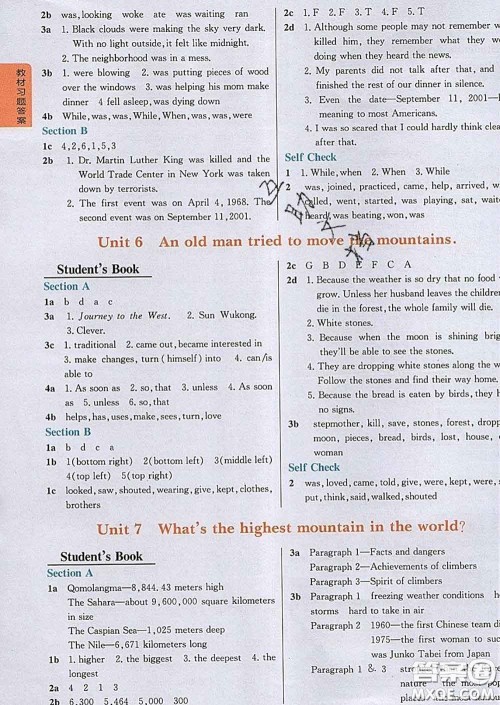 教材习题答案
2b wings woke ate was waiting ran
3a 1. Black clouds were making the sky very dark.
With no light outside, it felt like midnight.
2. The neighborhood was in a mess.
3b 1. were blowing 2. was putting pieces of wood
over the windows 3. was helping his mom make
dinner 4 fell asleep, was dying down
4b While, was, was, While, When, was, was, were
Section B
1c 4,2,6,1,5,3
2b 1. Dr. Martin Luther King was killed and the
World Trade Center in New York was taken
down by terrorists.
2. The first event was on April 4, 1968. The
second event was on September 11, 2001.
2c 1. F 2. F 3. T 4. F 5. T
2d 1. Although some people may not remember
they remember what they we
doing when they heard the news.
2. My parents did not talk after that, and
finished the rest of our dinner in silence.
3. Even the date—September 11, 2001—
meaning to most Americans.
4. I was so scared that I could hardly think clear
after that.
Self Check
1 1. While, when 2. When 3. While
2 was, joined, practiced, came, help, arrived, w
called, went, started, was, stopped, said, wait
heard, was beating, won, was
Unit 6 An old man tried to move the mountains.
Student's Book
Section A
1a b d a c
3a 1. Journey to the West. 2. Sun Wukong.
3. Clever.
3c 1. traditional 2. came out, became interested in
3. make changes, turn (himself) into 4. can/is
able to
4a 1. As soon as 2. so, that 3. unless 4. As soon
as 5. unless 6. so, that
4b helps, has, uses, make, sees, turn, love
Section B
1a b d c a
1b 1(bottom right) 2(bottom left) 3(middle left)
4(top left) 5(top right)
1c looked, saw, shouted, wearing, give, kept, clothes,
brothers
2c G B D E F C A
2d 1. Because the weather is so dry that no food
grow. Unless her husband leaves the children
die in the forest, the whole family will die.
2. White stones.
3. Because when the moon is shining brigh
they'll be able to see the stones.
4. They are dropping white stones along the way
follow the stones and find their way home.
5. Because the bread is eaten by birds, they h
no signs.
3b stepmother, kill, save, stones, forest, dropp
moon, pieces, bread, birds, lost, house,
woman
Self Check
2 was, loved, came, told, give, were, kept, were, s
put, think, said, walked, shouted
Unit 7 What's the highest mountain in the world?
Student's Book
Section A
1a Qomolangma—8,844.43 meters high
The Sahara—about 9,600,000 square kilometers
in size
The Caspian Sea—1,025 meters deep
The Nile—6,671 kilometers long
1b 1. higher 2. the biggest 3. the deepest 4. the
longest
2a 4 2 1 3
2b 6,300 5,464 5,000 300
3a Paragraph 1—Facts and dangers
Paragraph 2—Achievements of climbers
Paragraph 3—Spirit of climbers
3b Paragraph 1 freezing weather conditions he
storms hard to take in air
Paragraph 2 1960—the first Chinese team di
1975—the first woman to suc
was Junko Tabei from Japan
Paragraph 1 & 3
答案圈
MXQE.COM